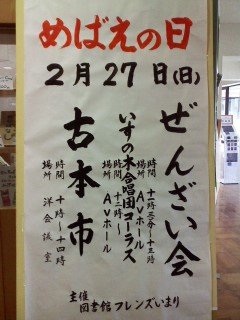 めばえの日
2月27日(日)
ぜんざい会
時間 十一時三〇分～十三時
場所 AVホール
いすの木合唱団コーラス
時間 十二時～
場所 AVホール
古本市
時間 十時～十四時
場所 洋会議室
主催
図書館フレンズいまり